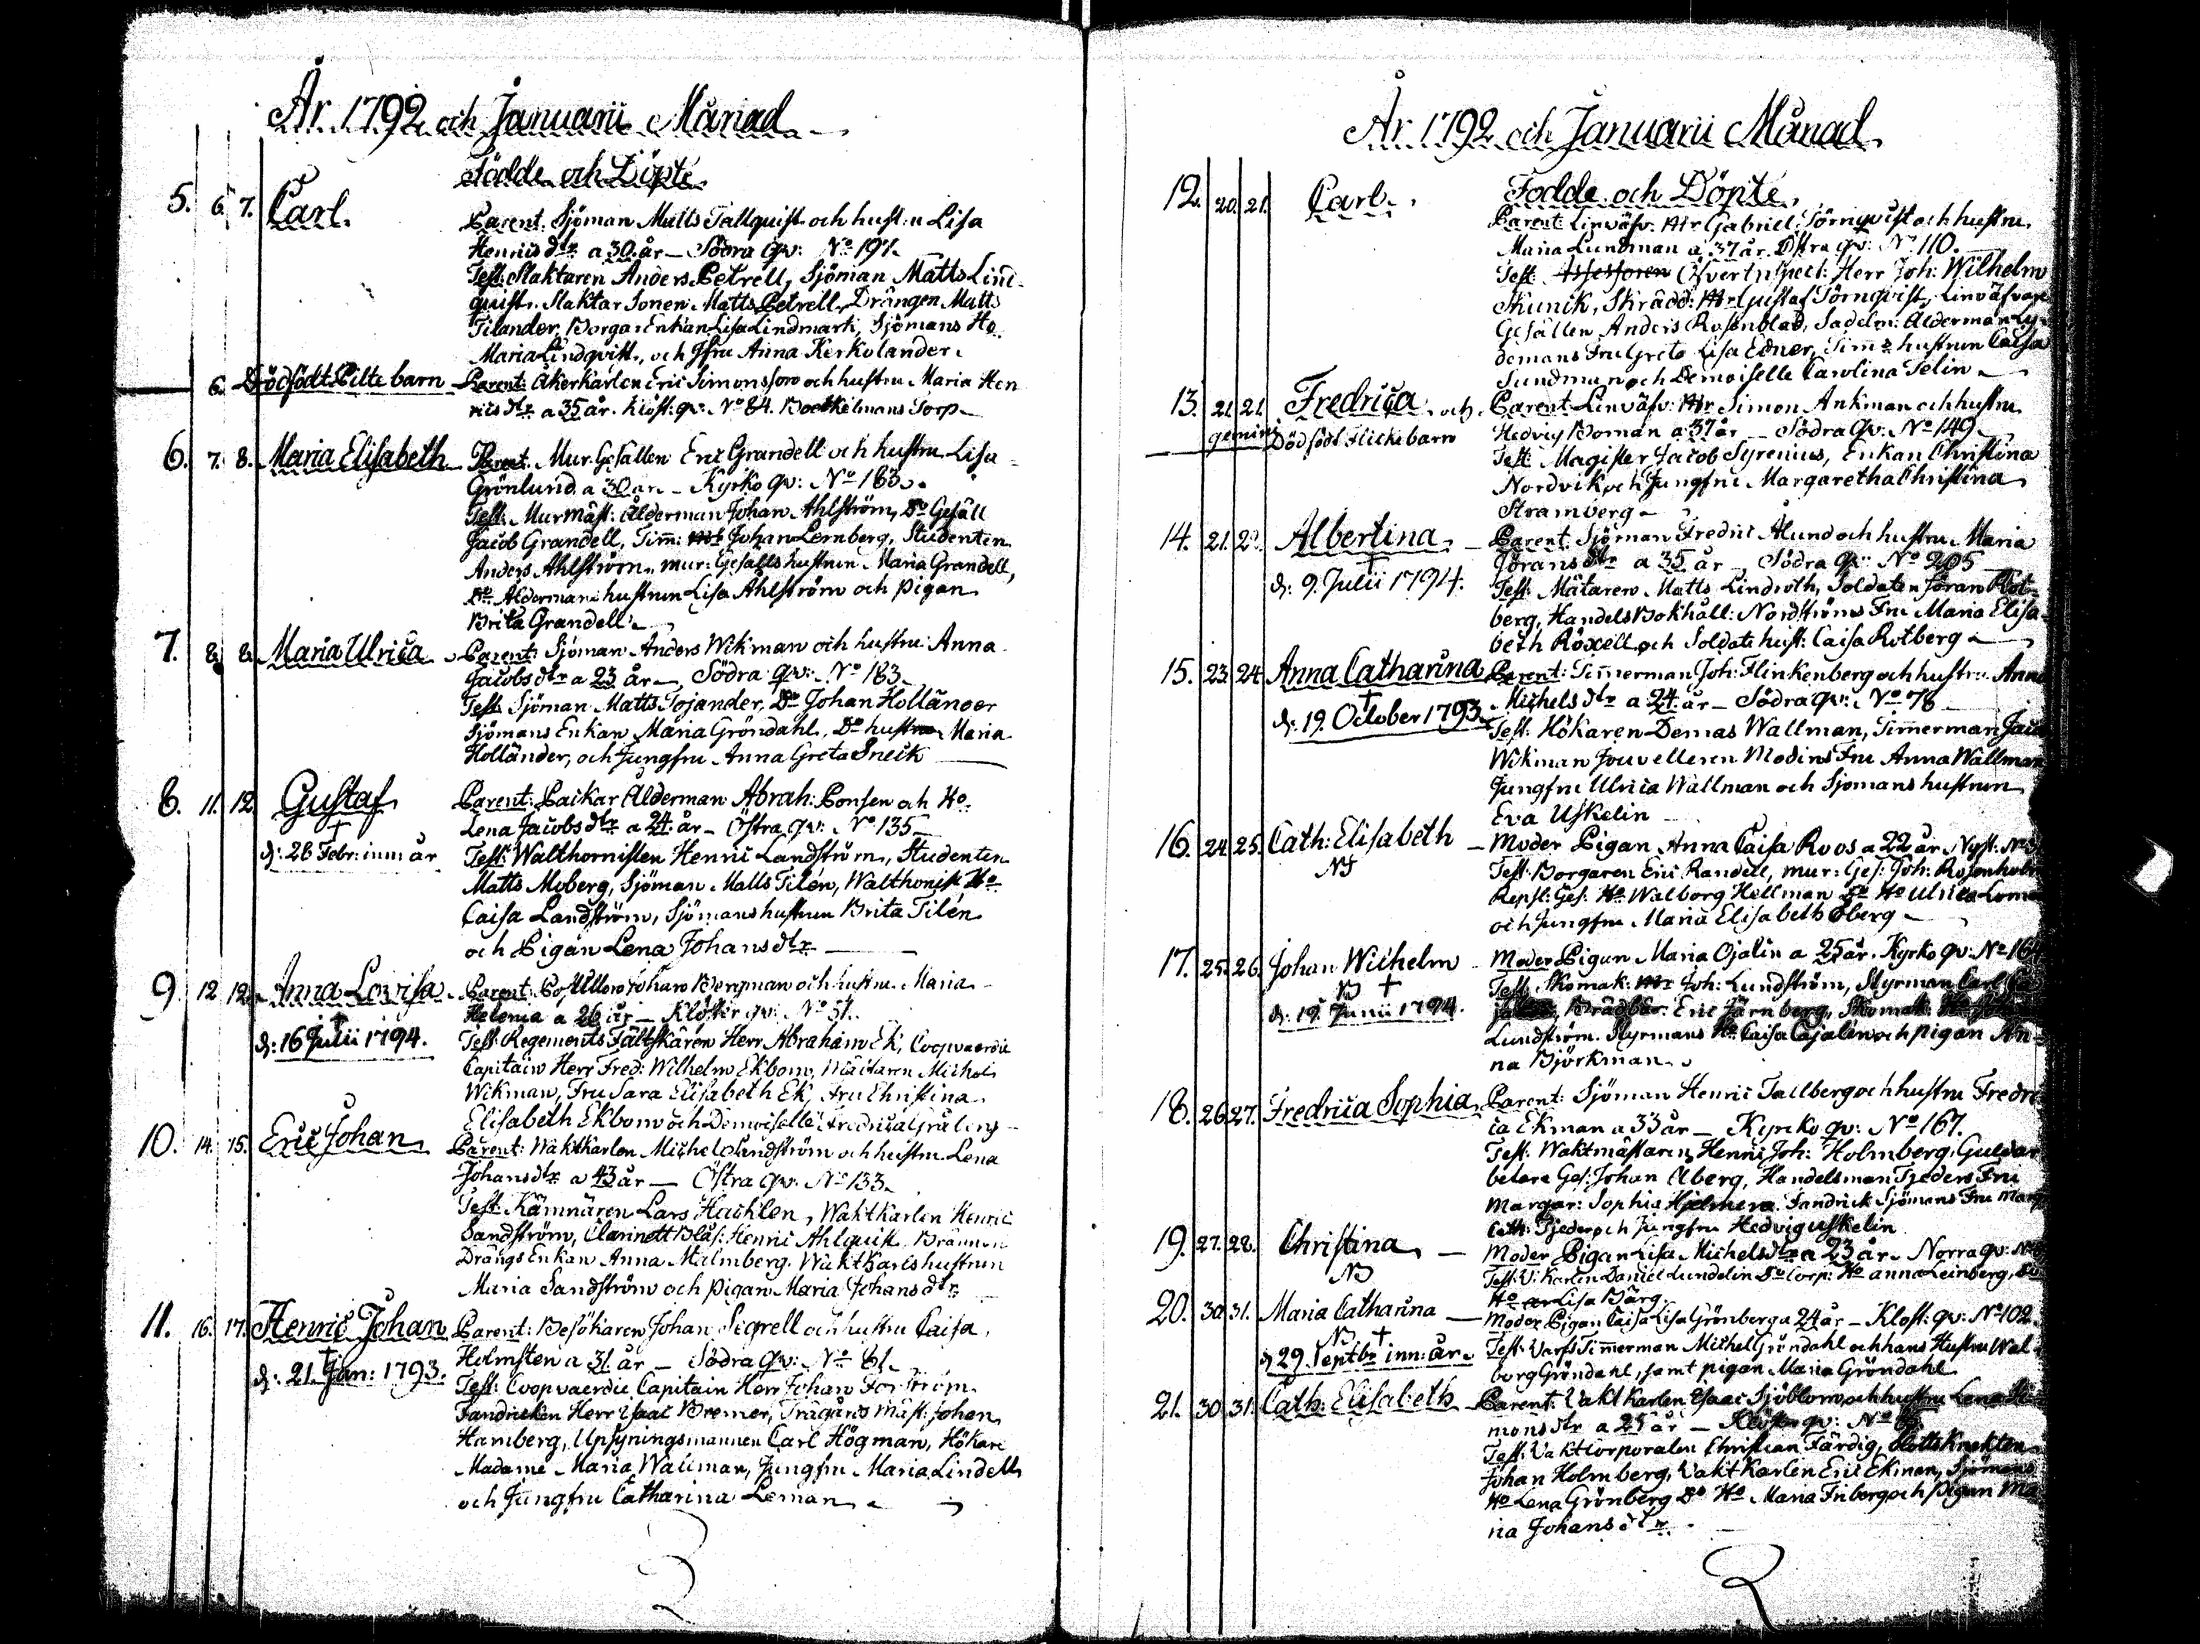 År 1792 och Januarii Månad
Födde och Döpte
5. 6. 7. Carl.
Parent: Sjöman Matts Tallquist och hust:n Lisa
Henricsdtr a 30 år – Södra qv: No 197.
Test: Slaktaren Anders Petrell, Sjöman Matts Lind-
quist, Slaktar Sonen Matts Petrell, Drängen Matts
Tilander, Borgar Enkan Lisa Lindmark, Sjömans Ho
Maria Lindqvist, och Jfru Anna Kerkolander.
6. Dödfödt Pilte barn – Parent: Åkerkarlen Eric Simonsson och hustru Maria Hen
ricsdtr a 35 år. Klost: qv: No 84. Torp
6. 7. 8. Maria Elisabeth Parent. Mur Gesällen Eric Grandell och hustru Lisa
Grönlund a 30 år – Kyrko qv: No 163.
Test: Murmäst: Ålderman Johan Ahlström, Do Gesäll
Jacob Grandell, Tim: Mr Johan Lernberg, Studenten
Anders Ahlström, mur: Gesälls hustrun Maria Grandell,
Do Aldermans hustrun Lisa Ahlström och pigan
Brita Grandell
7. 8. 8. Maria Ulrica Parent: Sjöman Anders Wikman och hustru Anna
Jacobsdtr a 23 år – Södra qv: No 183.
Test: Sjöman Matts Tojander, Do Johan Holländer
Sjömans Enkan Maria Gröndahl, Do hustru Maria
Holländer, och Jungfru Anna Greta Sneck
8. 11. 12. Gustaf
Parent: Packar Ålderman Abrah: Ponsen och Ho
Lena Jacobsdtr a 24 år – Östra qv: No 135
d: 26 Febr: inn: år
Test: Walthornisten Henric Landström, Studenten
Matts Moberg, Sjöman Matts Tilén, Walthornist Ho
Caisa Landström, Sjömans hustrun Brita Tilén
och Pigan Lena Johansdtr
9. 12. 12. Anna Lovisa Parent: Johan Bergman och hustru Maria
Helenia a 26 år – Kloster qv: No 51.
d: 16 Julii 1794.
Test: Regements Fältskären Herr Abraham Ek, Coopvaerdie
Capitain Herr Fred: Wilhelm Ekbom, Michel
Wikman, Fru Sara Elisabeth Ek, Fru Christina
Elisabeth Ekbom och Demoiselle Fredrica Gråberg
10. 14. 15. Eric Johan Parent: Waktkarlen Michel Sandström och hustru Lena
Johansdtr a 43 år – Östra qv: No 133.
Test: Kämnären Lars Hacklen, Waktkarlen Henric
Sandström, Clarinett Blås: Henric Ahlquist
Drängs Enkan Anna Malmberg. Waktkarls hustrun
Maria Sandström och pigan Maria Johansdtr
11. 16. 17. Henric Johan Parent: Besökaren Johan Segrell och hustru Caisa
Holmsten a 31 år – Södra qv: No 61.
d. 21. Jan: 1793.
Test: Coopvaerdie Capitain Herr Johan Forström
Fandricken Herr Isaac Bremer, Trägårds mäst: Johan
Hamberg, Upsyningsmannen Carl Högman, Hökare
Madame Maria Wallman, Jungfru Maria Lindell
och Jungfru Catharina Leman
År 1792 och Januarii Månad
12. 20. 21. Carl.
Födde och Döpte.
Parent: Linväfv: Mr Gabriel Törnqvist och hustru
Maria Lundman a 37 år. Östra qv: No 110.
Test: Assessoren Herr Joh: Wilhelm
Skunik, Skrädd: Mr Gustaf Törnqvist, Linväfvare
Gesällen Anders Rosenblad, Sadelm: Alderman
demans Fru Greta Lisa Edner, Timr hustrun Caisa
Sundman och Demoiselle Carolina Telin
13. 21. 21. Fredrica och Parent Linväfv: Mr Simon Ankman och hustru
gemini Dödfödt Flickebarn Hedvig Boman a 37 år – Södra qv: No 149
Test: Magister Jacob Syrenius, Enkan Christina
Nordvik och Jungfru Margaretha Christina
Stramberg
14. 21. Albertina. Parent: Sjöman Fredric Ålund och hustru Maria
Jöransdtr a 35 år – Södra qv: No 205
d: 9. Julii 1794. Test: Mätaren Matts Lindroth, Soldaten Jöran Rot-
berg, Handels Bokhåll: Nordströms Fru Maria Elisa-
beth Röxell och Soldats hust: Caisa Rotberg
15. 23. 24. Anna Catharina Parent: Timmerman Joh: Flinkenberg och hustru Anna
Michelsdtr a 24 år – Södra qv: No 78
d: 19. October 1793. Test: Hökaren Demas Wallman, Timmerman
Wikman Jouvelleren Modins Fru Anna Wallman
Jungfru Ulrica Wallman och Sjömans hustrun
Eva Uskelin
16. 24. 25. Cath: Elisabeth – Moder Pigan Anna Caisa Roos a 22 år Nyst:
Test: Borgaren Eric Randell, mur: Ges: Joh:
Repsl: Ges: Ho Walborg Hellman Do Ho Ulrica
och Jungfru Maria Elisabeth Öberg
17. 25. 26. Johan Wilhelm Moder Pigan Maria Ojalin a 25 år. Kyrko qv: No 164
Test: Skomak: Mr Joh: Lundström, Styrman Carl
d: 19. Junii 1794. Eric Järnberg, Skomak:
Lundström. Styrmans Ho Caisa Cajalén och pigan An-
na Björkman
18. 26. 27. Fredrica Sophia Parent: Sjöman Henric Tallberg och hustru Fredri
ca Ekman a 33 år – Kyrko qv: No 167.
Test: Waktmästaren Henric Joh: Holmberg, Guldar
betare Ges: Johan Åberg, Handelsman Tjeders Fru
Margar: Sophia Fandrick Sjömans Fru
Cath: Tjeder och Jungfru Hedvig Uskelin
19. 27. 28. Christina – Moder Pigan Lisa Michelsdtr a 23 år – Norra qv:
Test: V: Karlen Daniel Lundelin Do Corp: Ho Anna Leinberg,
Ho Lisa Bärg
20. 30. 31. Maria Catharina Moder Pigan Caisa Lisa Grönberg a 24 år – Klost: qv: No 102.
d 29 Septbr inn: år Test: Varfs Timmerman Michel Gröndahl och hans Hustru Wal
borg Gröndahl, samt pigan Maria Gröndahl
21. 30. 31. Cath: Elisabeth Parent: Vaktkarlen Isaac Sjöblom och hustru Lena
monsdtr a 25 år – Kloster qv: No
Test: Vaktcorporalen Christian Färdig, Slotts Knekten
Johan Holmberg, Vakt Karlen Eric Ekman, Sjömans
Ho Lena Grönberg Do Ho Maria Friberg och pigan Ma
ria Johansdtr